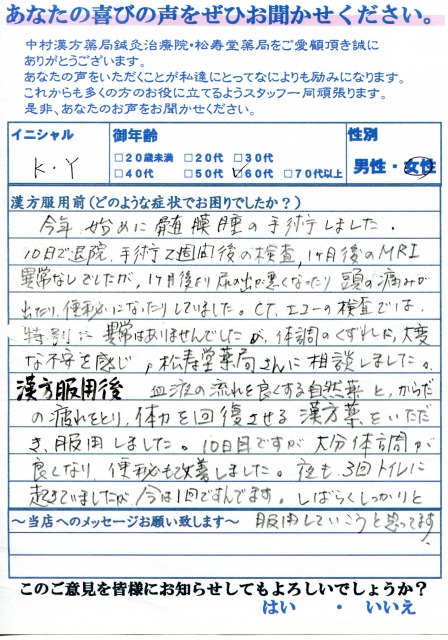 あなたの喜びの声をぜひお聞かせください。
中村漢方薬局鍼灸治療院・松寿堂薬局をご愛顧頂き誠に
ありがとうございます。
あなたの声をいただくことが私達にとってなによりも励みになります。
これからも多くの方のお役に立てるようスタッフ一同頑張ります。
是非、あなたのお声をお聞かせください。
イニシャル 御年齢 性別
K・Y □20歳未満 □20代 □30代
□40代 □50代 □60代 □70代以上 男性・女性
漢方服用前(どのような症状でお困りでしたか?)
今年始めに髄膜腫の手術をしました。
10日で退院、手術2週間後の検査、1ヶ月後のMRI
異常なしでしたが、1ヶ月後より尿の出が悪くなったり頭の痛みが
出たり、便秘になったりしていました。CT、エコーの検査では、
特別に異常はありませんでしたが、体調のくずれに、大変
な不安を感じ、松寿堂薬局さんに相談しました。
漢方服用後 血液の流れを良くする自然薬と、からだ
の疲れをとり、体力を回復させる漢方薬をいただ
き、服用しました。10日目ですが大分体調が
良くなり、便秘も改善しました。夜も3回トイレに
起きていましたが今は1回ですんでます。しばらくしっかりと
～当店へのメッセージお願い致します～ 服用していこうと思ってます
このご意見を皆様にお知らせしてもよろしいでしょうか?
はい ・ いいえ